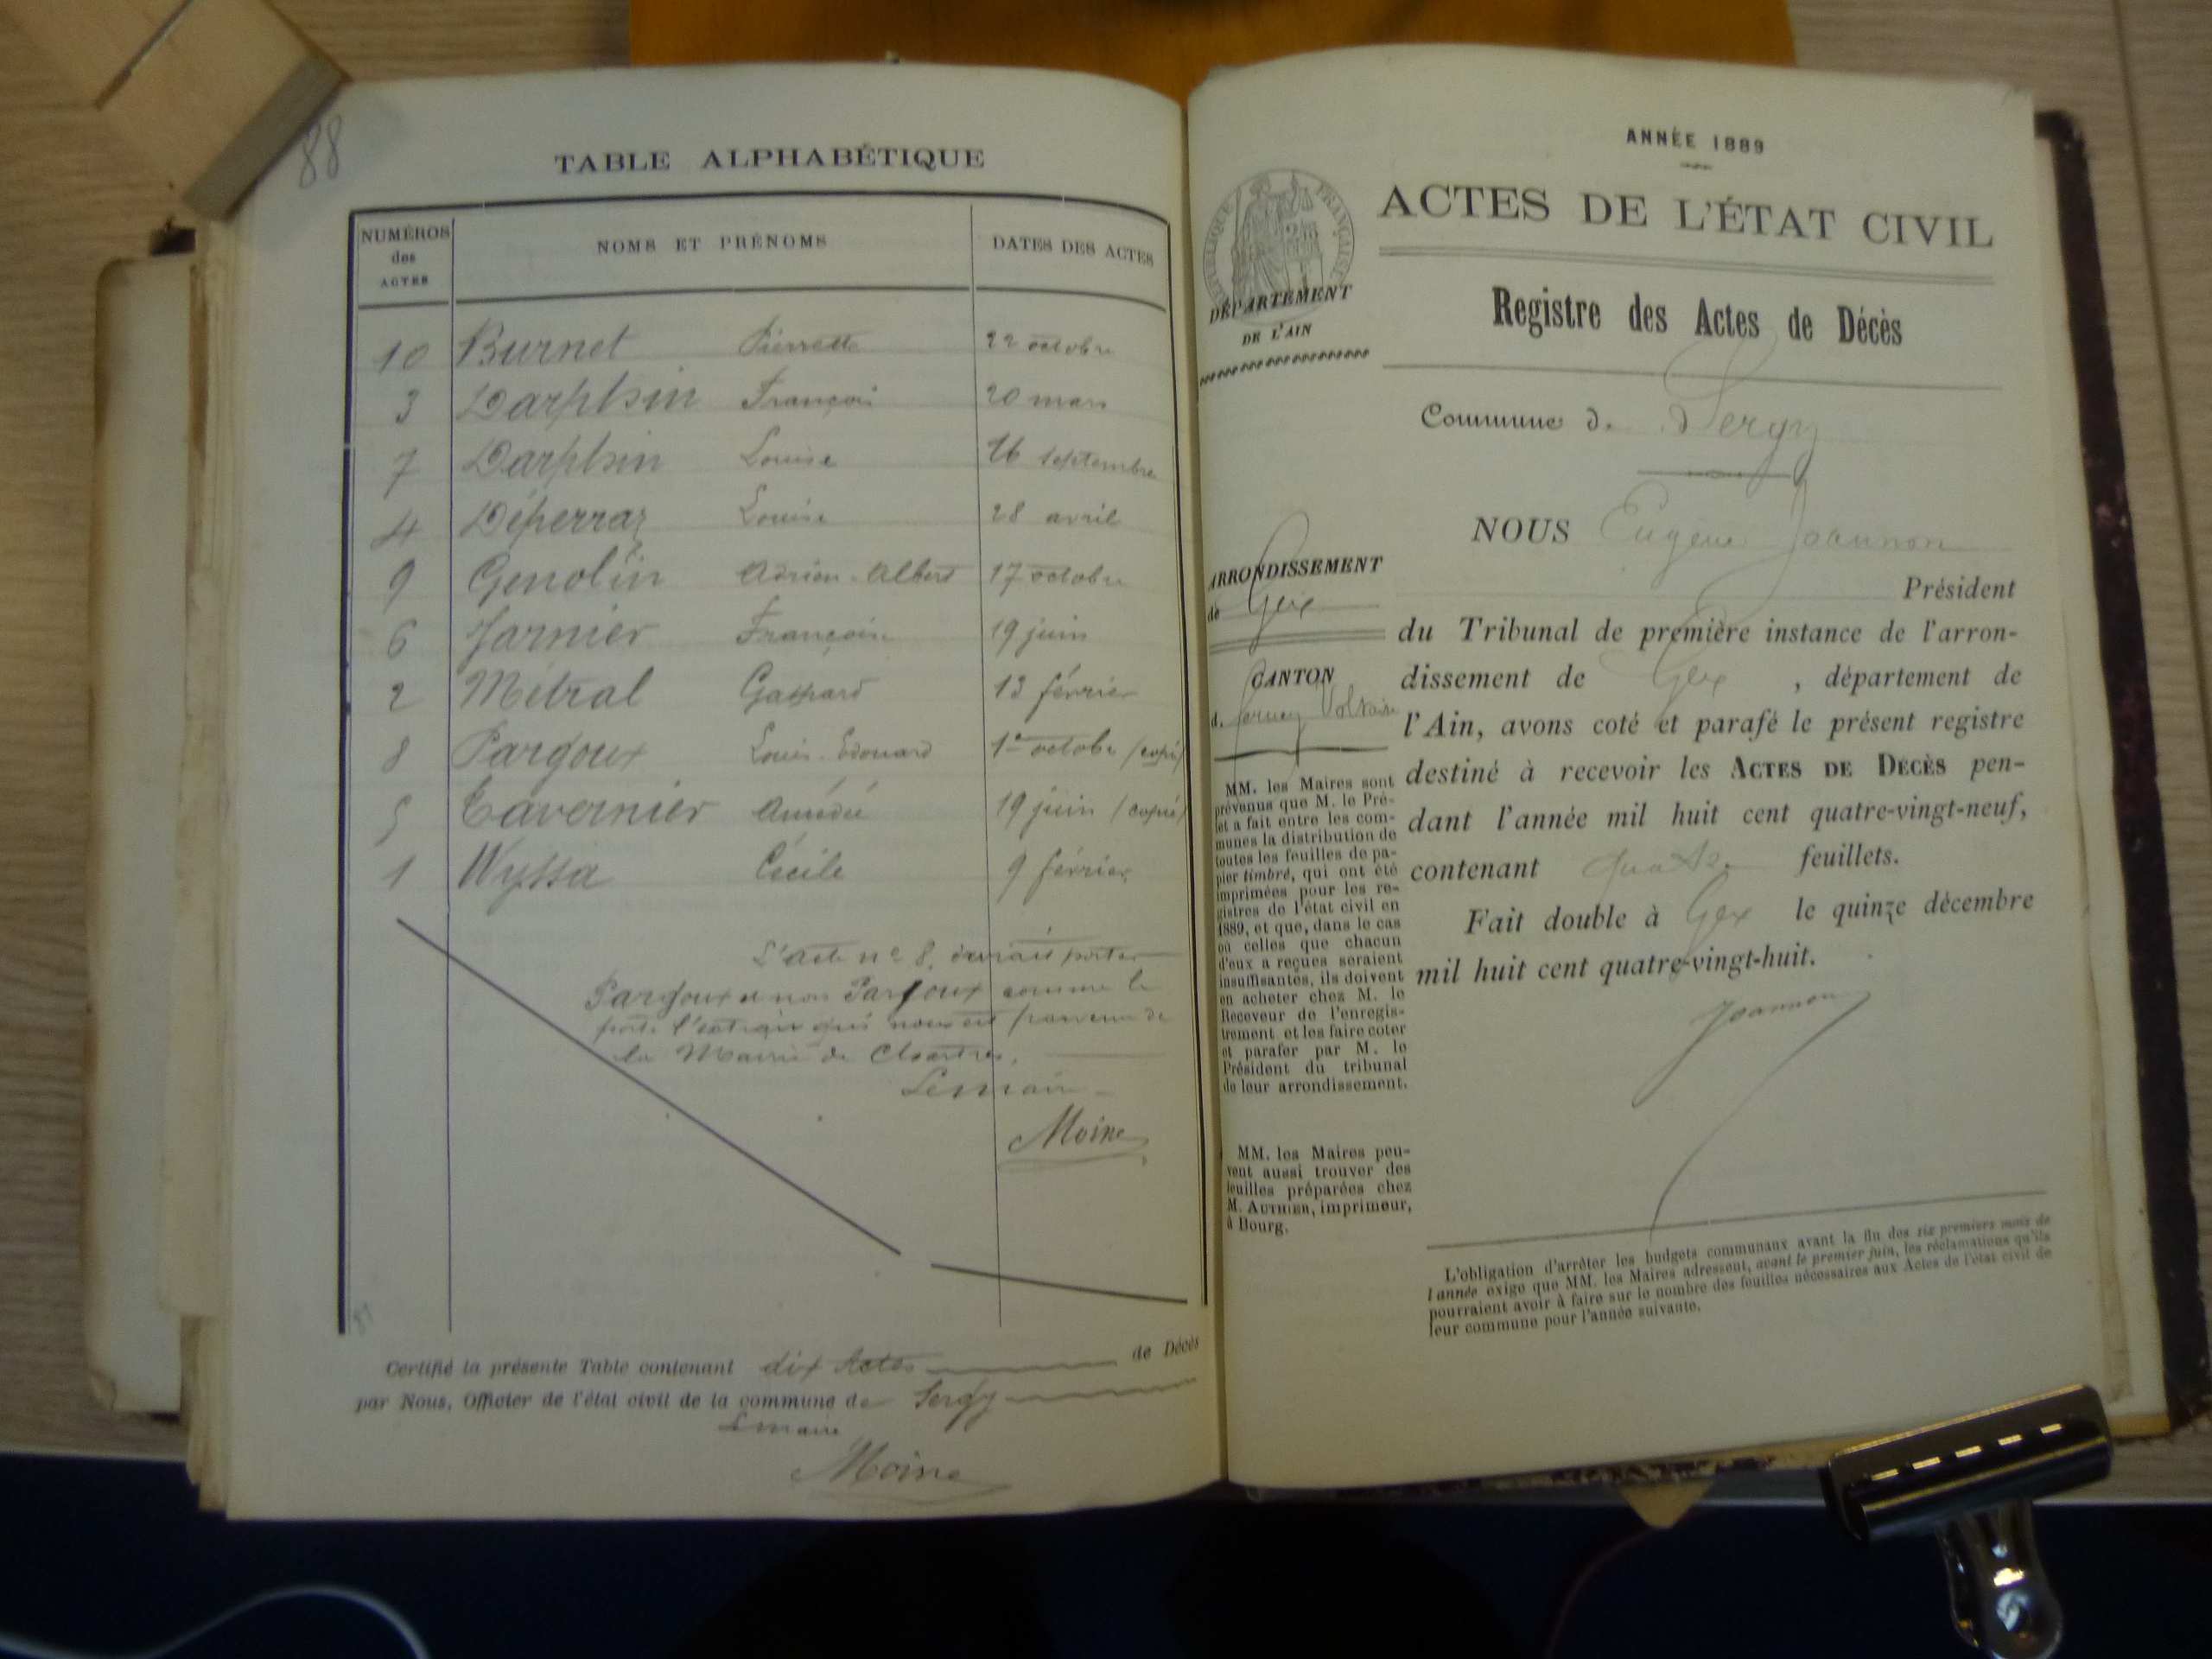 88
TABLE ALPHABÉTIQUE
NUMÉROS des ACTES NOMS ET PRÉNOMS DATES DES ACTES
10 Burnet Pierrette 22 octobre
3 Darphin François 20 mars
7 Darphin Louise 16 septembre
4 Déperraz Louise 28 avril
9 Genolin Adrien-Albert 17 octobre
6 Jarnier François 19 juin
2 Métral Gaspard 13 février
8 Pargoux Louis-Edouard 1er octobre (copié)
5 Tavernier Amédée 19 juin (copié)
1 Wyssa Cécile 9 février
L'acte no 8, devrait porter
Pargoux et non Parjoux comme le
porte l'extrait qui nous est parvenu de
la Mairie de Chartres.
Le maire
Moine
Certifié la présente Table contenant dix Actes de Décès
par Nous, Officier de l'état civil de la commune de Sergy
Le maire
Moine
ANNÉE 1889
RÉPUBLIQUE FRANÇAISE
ACTES DE L'ÉTAT CIVIL
DÉPARTEMENT
DE L'AIN
Registre des Actes de Décès
Commune de Sergy
ARRONDISSEMENT
de Gex
CANTON
de Ferney Voltaire
MM. les Maires sont
prévenus que M. le Pré-
fet a fait entre les com-
munes la distribution de
toutes les feuilles de pa-
pier timbré, qui ont été
imprimées pour les re-
gistres de l'état civil en
1889, et que, dans le cas
où celles que chacun
d'eux a reçues seraient
insuffisantes, ils doivent
en acheter chez M. le
Receveur de l'enregis-
trement et les faire coter
et parafer par M. le
Président du tribunal
de leur arrondissement.
MM. les Maires peu-
vent aussi trouver des
feuilles préparées chez
M. AUTHIER, imprimeur,
à Bourg.
NOUS Eugène Joannon
Président
du Tribunal de première instance de l'arron-
dissement de Gex, département de
l'Ain, avons coté et parafé le présent registre
destiné à recevoir les ACTES DE DÉCÈS pen-
dant l'année mil huit cent quatre-vingt-neuf,
contenant quatre feuillets.
Fait double à Gex le quinze décembre
mil huit cent quatre-vingt-huit.
Joannon
L'obligation d'arrêter les budgets communaux avant la fin des six premiers mois de
l'année exige que MM. les Maires adressent, avant le premier juin, les réclamations qu'ils
pourraient avoir à faire sur le nombre des feuilles nécessaires aux Actes de l'état civil de
leur commune pour l'année suivante.